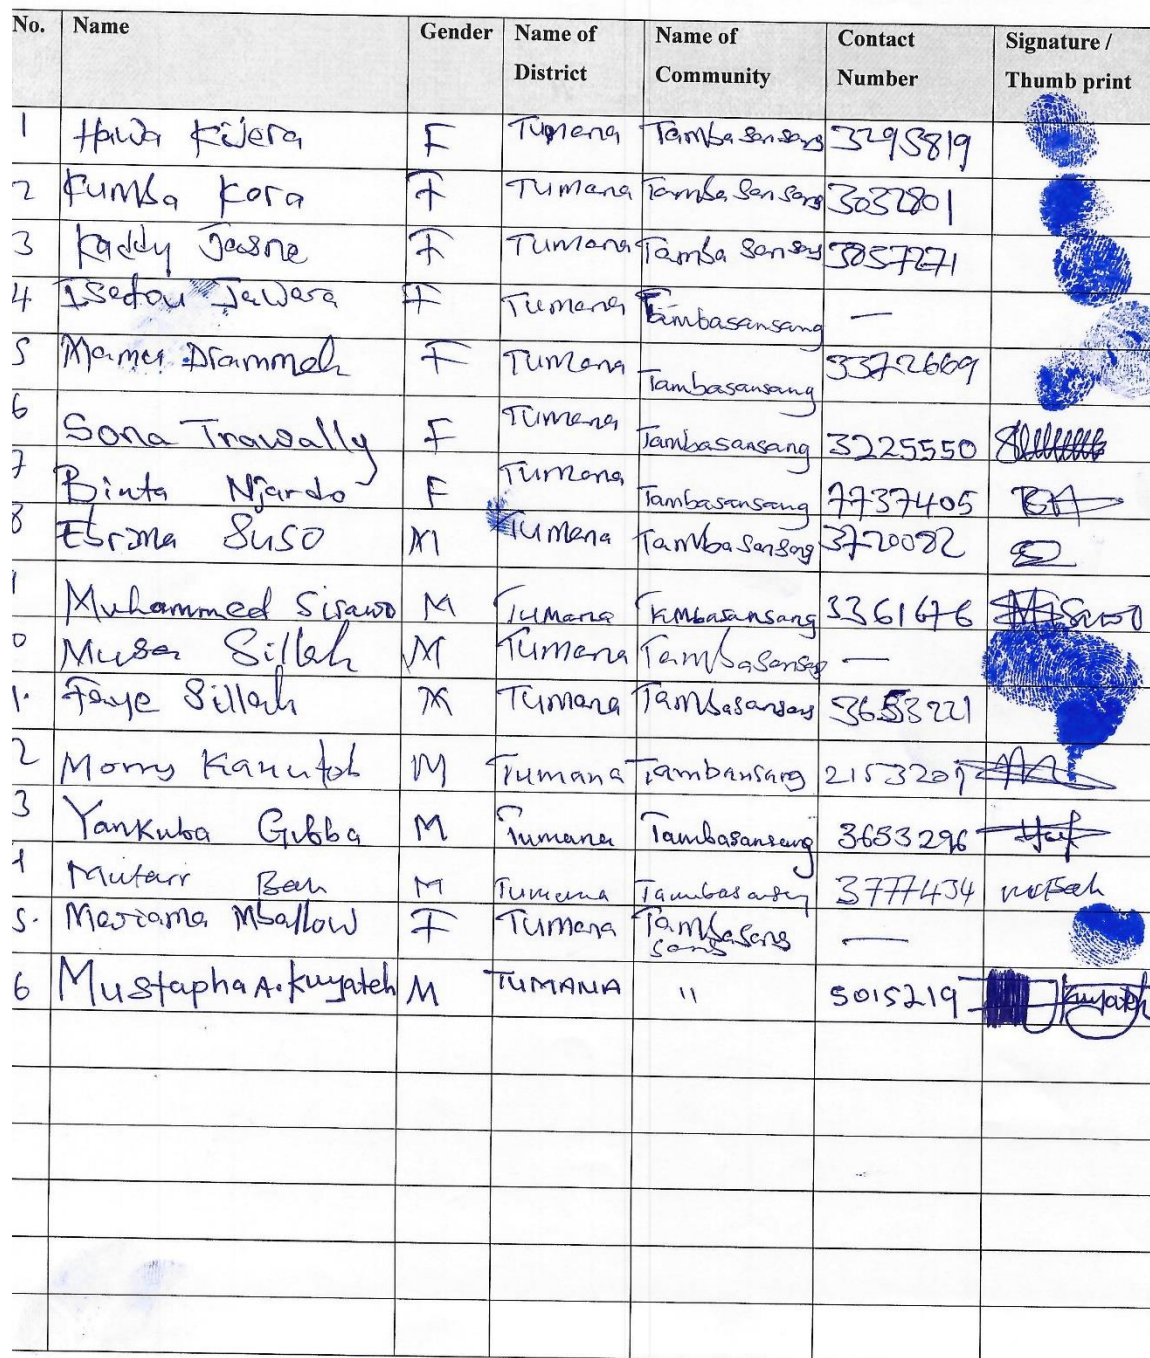 No. Name Gender Name of District Name of Community Contact Number Signature / Thumb print
1 Hawa Kijera F Tumana Tambasansang 3295819
2 Kumba Kora F Tumana Tambasansang 3032801
3 Kaddy F Tumana Tamba Sansang 3057271
4 Isatou Jawara F Tumana Tambasansang —
5 Drammeh F Tumana Tambasansang 3372669
6 Sona Trawally F Tumana Tambasansang 3225550
7 Binta Njardo F Tumana Tambasansang 7737405
8 Ebrima Suso M Tumana Tambasansang 3720082
Muhammed Sirawo M Tumana Tambasansang 3361676
0 Musa Sillah M Tumana Tambasansang —
1. Faye Sillah M Tumana Tambasansang 3653221
2 Kanuteh M Tumana Tambansang 2153207
3 Yankuba Gibba M Tumana Tambasansang 3653296
Mutarr Bah M Tumana Tambasansang 3777434
5. Mariama Mballow F Tumana Tambasang sang —
6 Mustapha A. Kuyateh M TUMANA " 5015219 Kuyateh